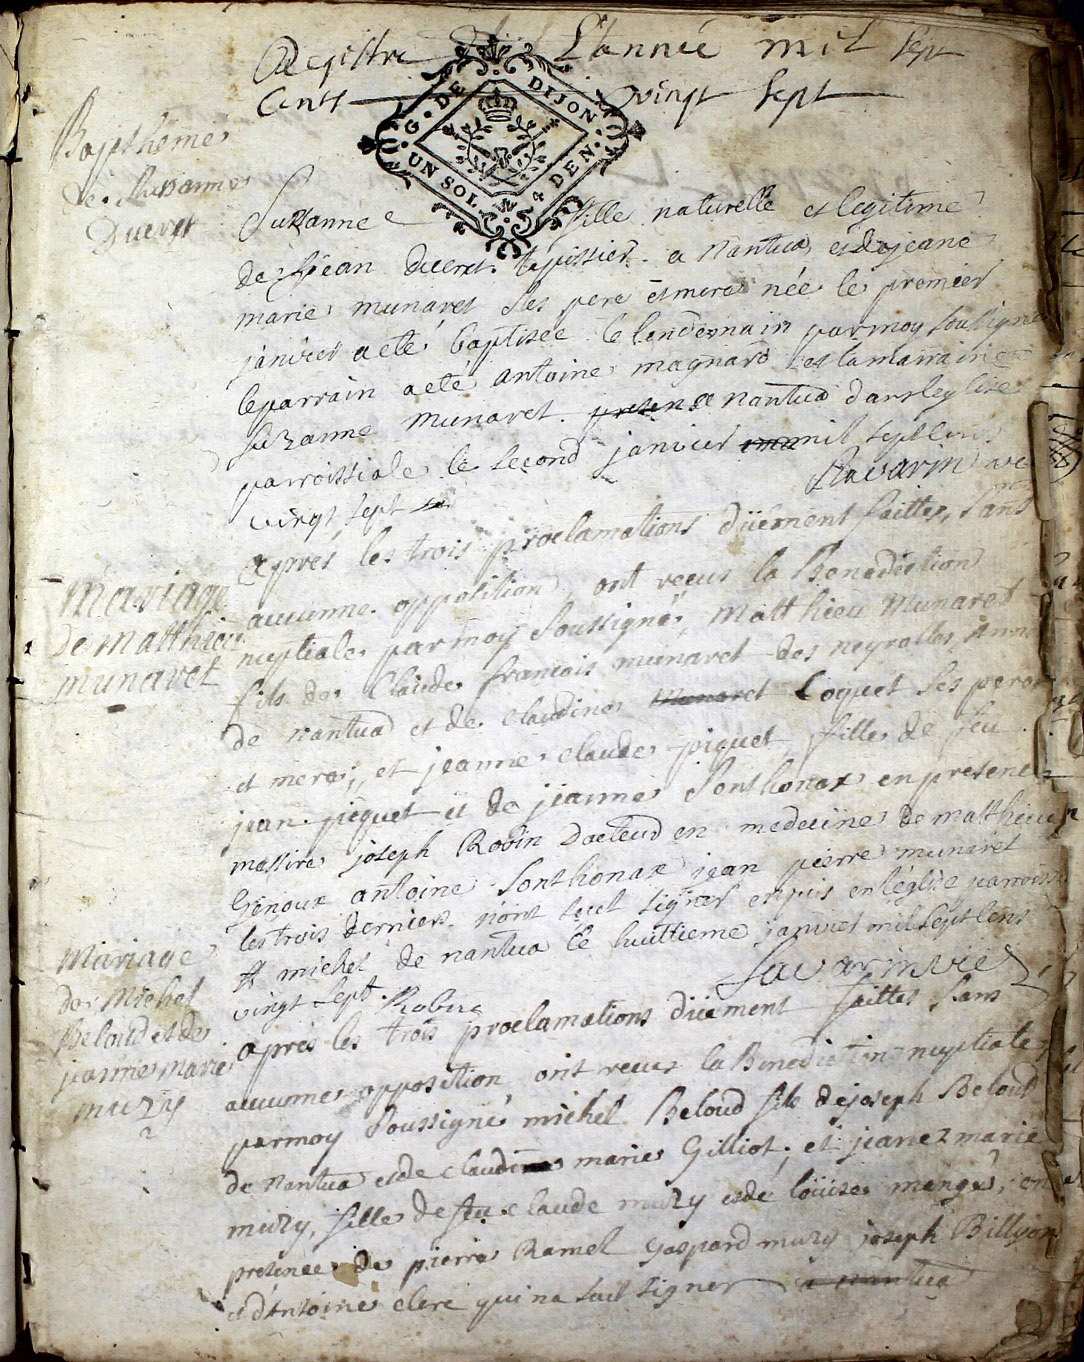 Registre de L'année mil sept
Cents vingt sept
G. DE DIJON
UN SOL. 4 DEN.
Bapthême
de Suzanne
Ducret
Suzanne fille naturelle et legitime
de jean ducret tapissier a Nantua et de jeane
marie munaret ses pere et mere née le premier
janvier a eté baptisée le lendemain par moy soussigné
le parrain a eté antoine magnard et la marraine
suzanne munaret. a nantua dans leglise
parroissiale le second janvier mil sept cens
vingt sept Ravarin vic
Mariage
de Matthieu
munaret
après les trois proclamations düement faittes, sans
aucunne opposition, ont receus la Benediction
nuptiale par moy soussigné, Matthieu Munaret
fils de Claude francois munaret des neyrolles,
de nantua et de Claudine Coquet ses pere
et mere, et jeanne claude piquet, fille de feu
jean piquet et de jeanne Sonthonax en presence
messire joseph Robin Docteur en medecine de matthieu
Genoux antoine Sonthonax jean pierre munaret
les trois derniers n'ont sçut signer enquis en l'église parroiss
st michel de nantua le huittieme janvier mil sept cens
vingt sept. Robin Savarin vic
Mariage
de Michel
Beloud et de
jeanne marie
muzy
après les trois proclamations düement faittes sans
aucunne opposition ont receus la Benediction nuptiale
par moy soussigné michel Beloud fils de joseph Beloud
de nantua et de claudine marie Gilliot, et jeane marie
muzy, fille de feu claude muzy et de loüise mange, en
presence de pierre Ramel Gaspard muzy joseph Billyon
et d'Antoine clerc qui na sçut signer a nantua